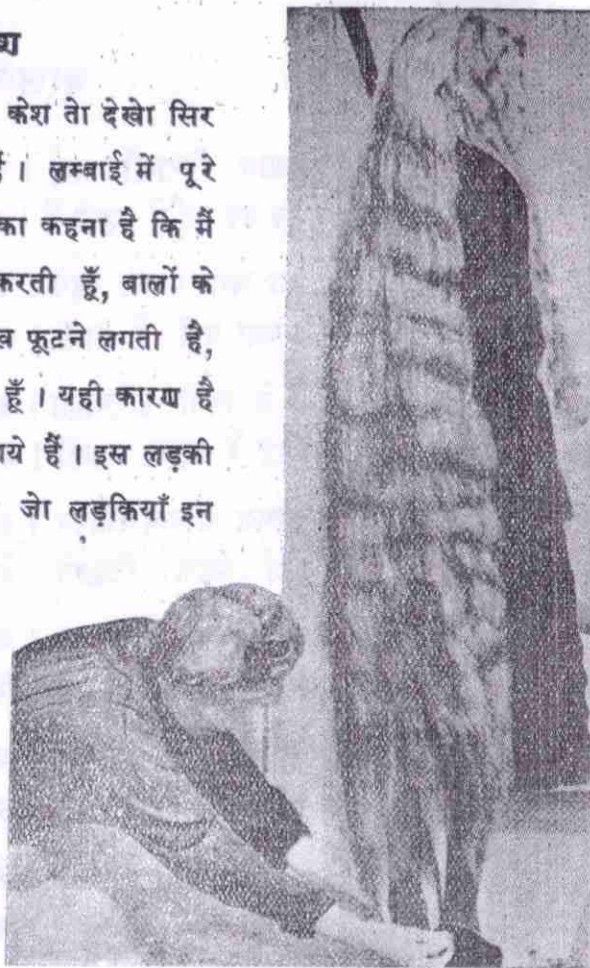 केश तो देखो सिर
। लम्बाई में पूरे
का कहना है कि मैं
करती हूँ, बालों को
फूटने लगती है,
हूँ । यही कारण है
गये हैं । इस लड़की
जो लड़कियाँ इन